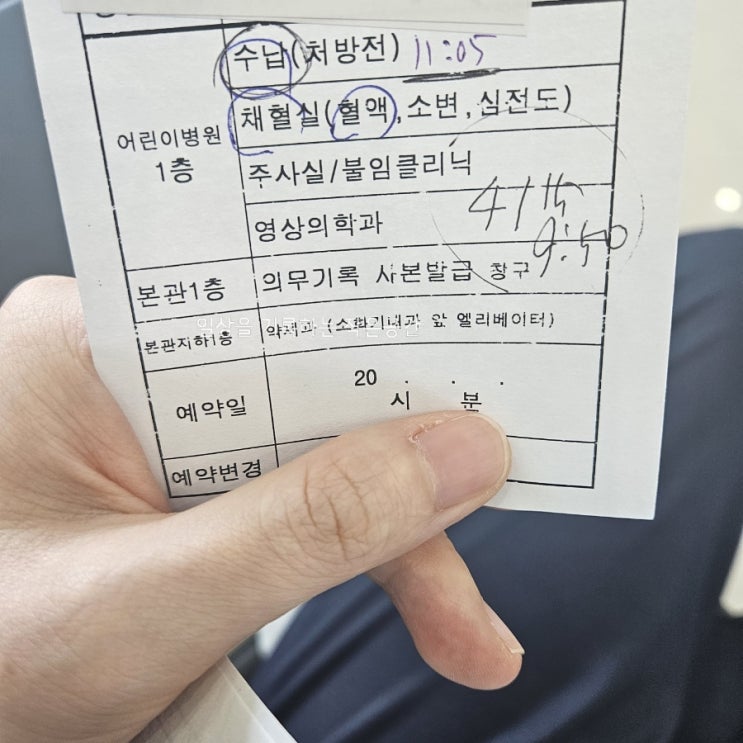 수납(처방전) 11:05
채혈실(혈액,소변,심전도)
어린이병원
1층
주사실/불임클리닉
영상의학과
9:50
본관1층 의무기록 사본발급 창구
본관지하1층 약제과 (소화기내과 앞 엘리베이터)
일상을 기록하는 작은공간
예약일 20 . . .
시 분
예약변경